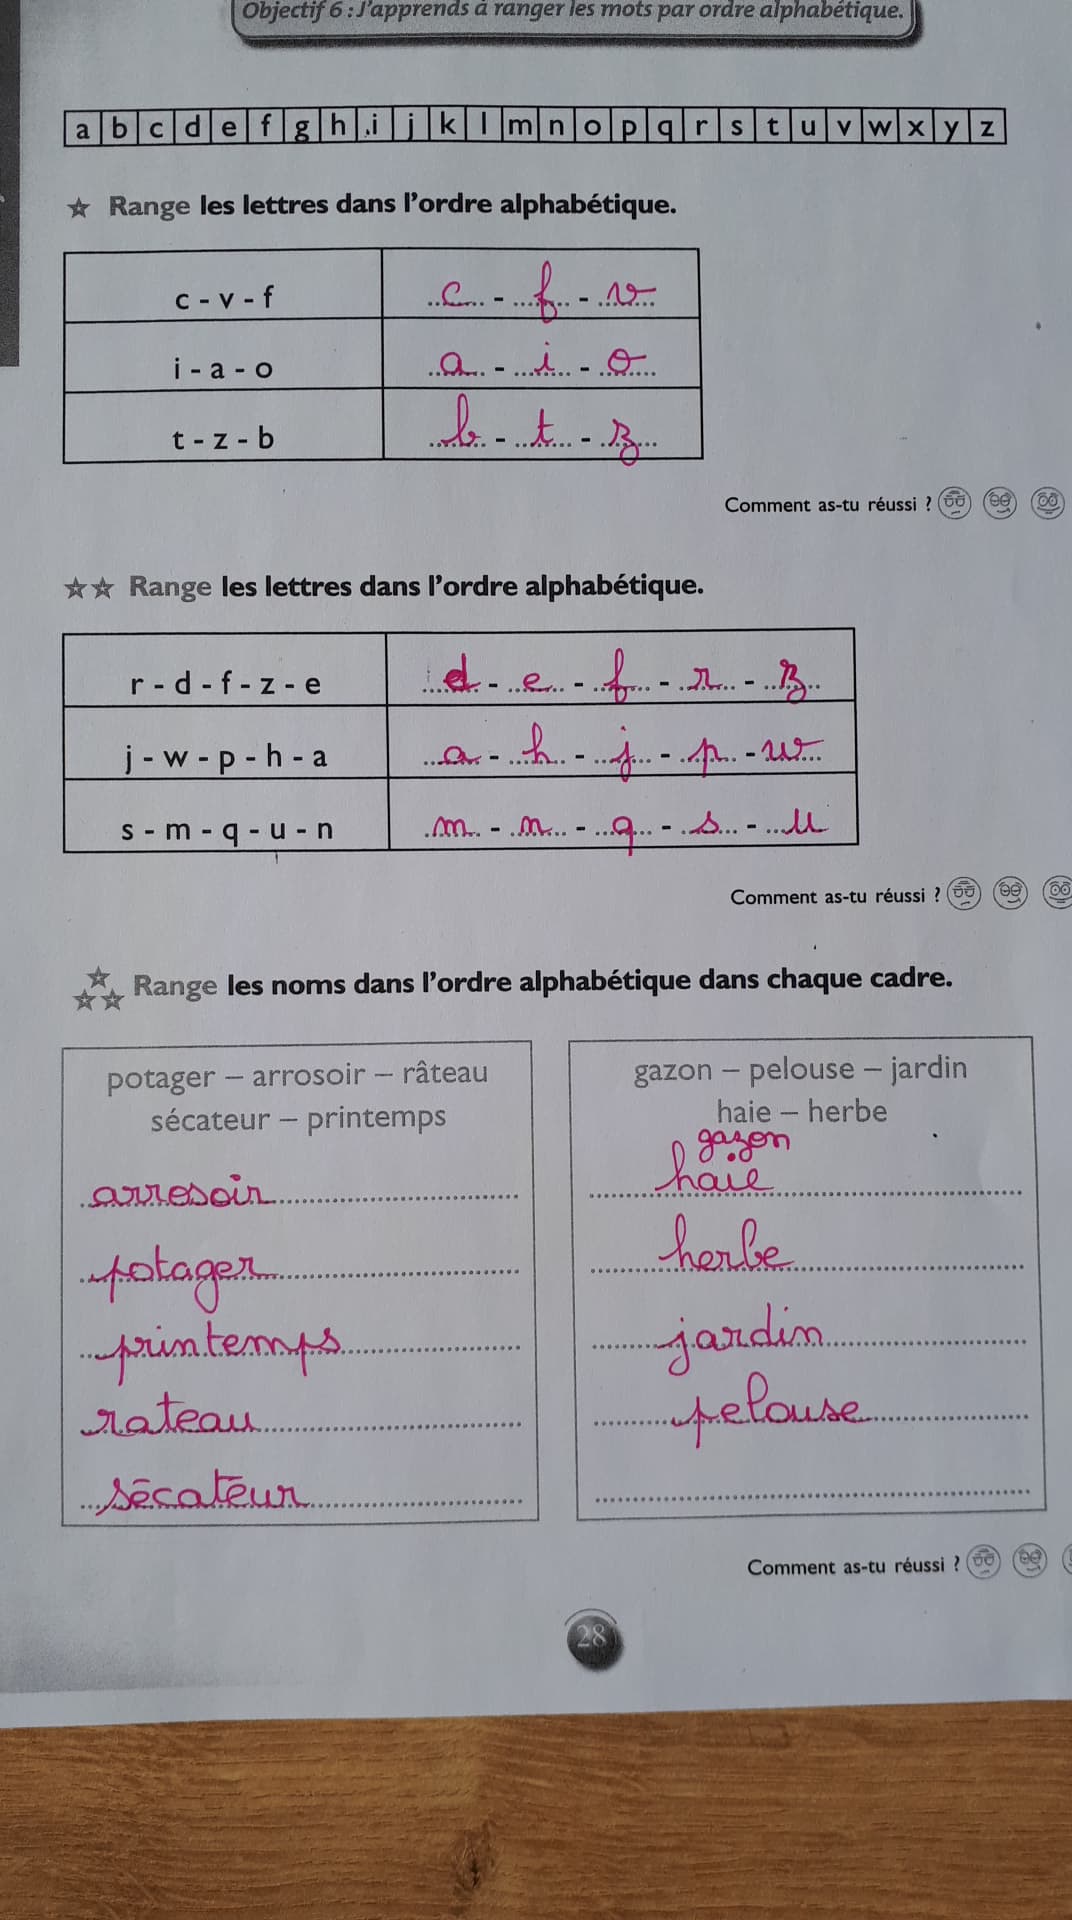 Objectif 6 : J'apprends à ranger les mots par ordre alphabétique.
a b c d e f g h i j k l m n o p q r s t u v w x y z
Range les lettres dans l'ordre alphabétique.
c - v - f c - f - v
i - a - o a - i - o
t - z - b b - t - z
Comment as-tu réussi ?
Range les lettres dans l'ordre alphabétique.
r - d - f - z - e d - e - f - r - z
j - w - p - h - a a - h - j - p - w
s - m - q - u - n m - n - q - s - u
Comment as-tu réussi ?
Range les noms dans l'ordre alphabétique dans chaque cadre.
potager – arrosoir – râteau
sécateur – printemps
arresoir
potager
printemps
rateau
sécateur
gazon – pelouse – jardin
haie – herbe
gazon
haie
herbe
jardin
pelouse
Comment as-tu réussi ?
28